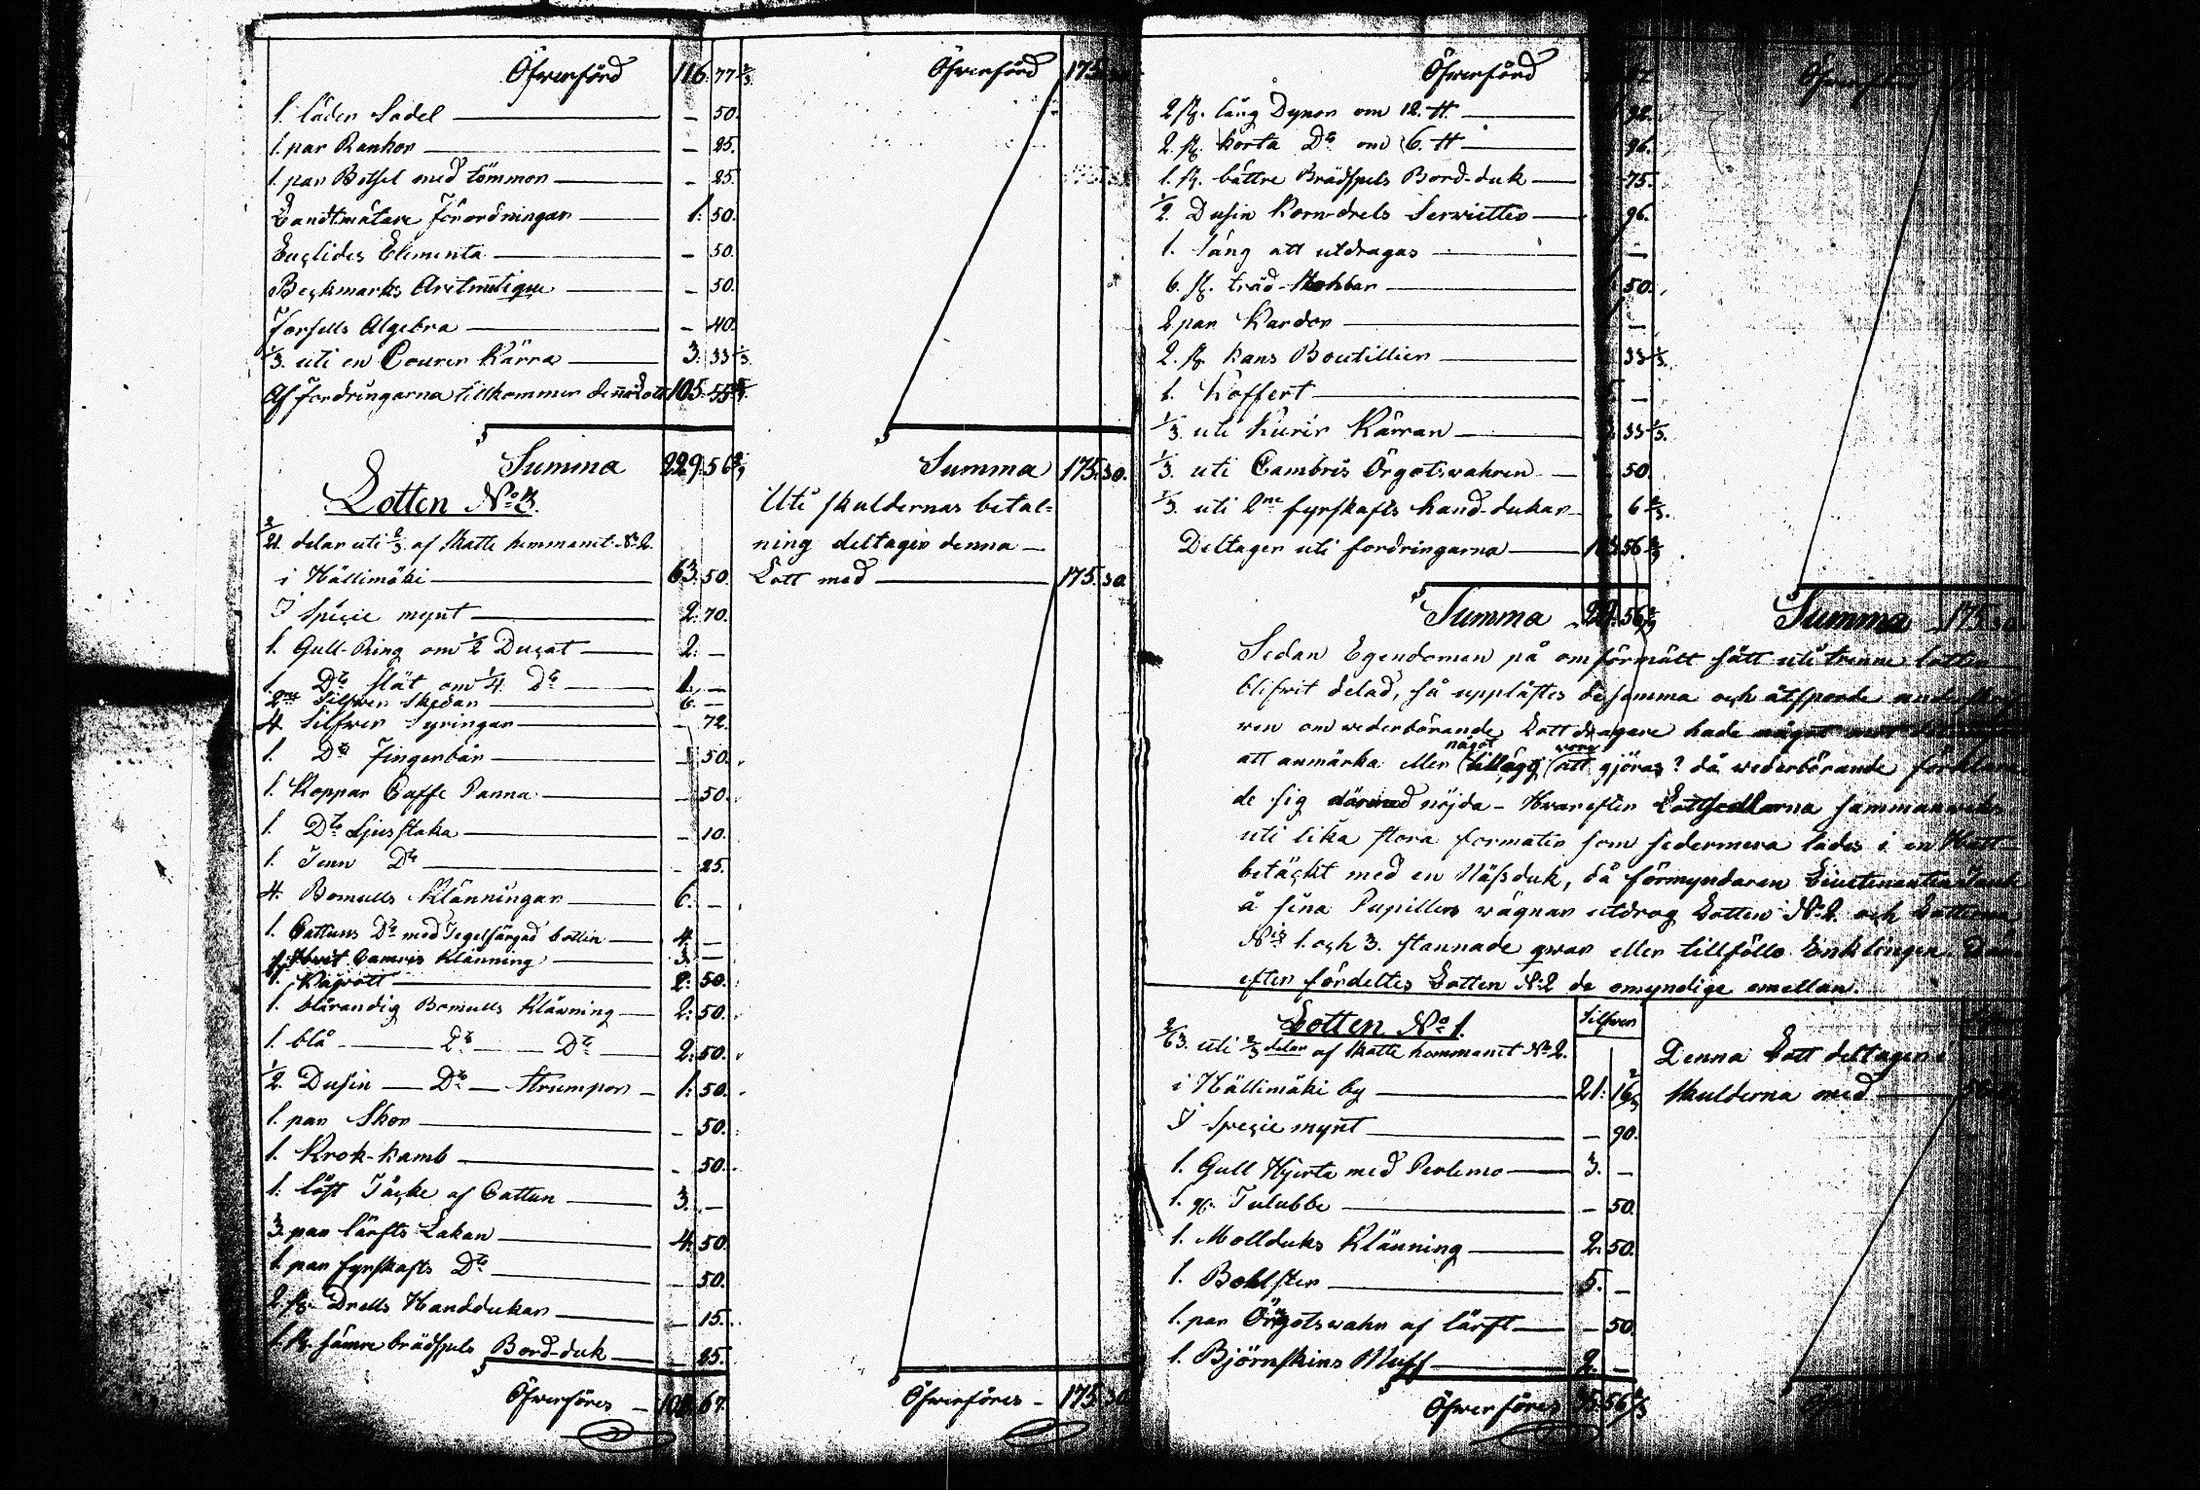 Öfwerförd 116. 77 2/3
1. läder Sadel — 50.
1. par Rankor — 25.
1. par Betsel med tömmor — 25.
Landtmätare Förordningar 1. 50.
Euclides Elementa — 50.
Beckmarks Aritmetique — 50.
Forsells Algebra — 40.
1/3. uti en Courer Kärra 3. 33 1/3.
Af fordringarna tillkommer denna Lott 105. 55
Summa 229. 56
Lotten No 3.
2/21 delar uti 2/3 af Skatte hemmanet No 2.
i Hällimäki 63. 50.
I Specie mynt 2. 70.
1. Gull-Ring om 1/2 Ducat 2. —
1. Do slät om 1/4 Do 1. —
2ne Silfwer Skedar 6. —
4. Silfwer Syringar — 72.
1. Do Fingerbår — 50.
1. Koppar Caffe Panna — 50.
1. Do Ljusstaka — 10.
1. Tenn Do — 25.
4. Bomulls Klänningar 6. —
1. Cattuns Do med Tegelfärgad bottin 4. —
1. Hwit Camris Klänning 3. —
1. Kaprott 2. 50.
1. blårandig Bomulls Klänning 2. 50.
1. blå Do Do 2. 50.
1/2 Dusin Do Strumpor 1. 50.
1. par Skor — 50.
1. Krok-kamb — 50.
1. löst Täcke af Cattun 3. —
3. par lärfts Lakan 4. 50.
1. par fyrskafts Do — 50.
2. st. Drells Handdukar — 15.
1. st. sämre brädspels Bord-duk — 25.
Öfwerföres 67.
Öfwerförd 175.
Summa 175. 30.
Uti skuldernas betal-
ning deltager denna
Lott med 175. 30.
Öfwerföres 175. 30.
Öfwerförd
2 st. lång Dynor om 12. tt 92.
2. st. korta Do om 6. tt 96.
1. st. bättre Brädspels Bord-duk 75.
1/2 Dusin Korn-drels Serwietter 96.
1. säng att utdragas —
6. st. träd-Stohlar 50.
2 par Kardor —
2. st. kans Boutillier 33 1/3.
1. Koffert —
1/3. uti Kurir Kärran 33 1/3.
1/3. uti Cambris Örgotswahren 50.
1/3. uti 2ne fyrskafts hand-dukar 6 2/3.
Deltager uti fordringarna 56
Summa 56
Summa 175. 30
Sedan Egendomen på omförmält sätt uti trenne lotter
blifwit delad, så upplästes desamma och åtsporde
wen om wederbörande Lott dragare hade något
att anmärka eller något tillägg wore att gjöras? då wederbörande förklara
de sig därmed nöjda – Hwarefter Lottsedlarna sammanweks
uti lika stora formater som sedermera lades i en Hatt
betäckt med en Näsduk, då förmyndaren Lieutenanten
å sina Pupillers wägnar utdrog Lotten No 2 och Lotterna
Nis 1. och 3. stannade qwar eller tillföllo Enklingen. Där
efter fördeltes Lotten No 2 de omyndige emellan.
Lotten No 1. Silfwer
2/63. uti 2/3 delar af Skatte hemmanet No 2.
i Hällimäki by 21. 16 2/3
I Specie mynt — 90.
1. Gull Hjerta med Perlemo 3. —
1. gl. Tulubbe — 50.
1. Mollduks Klänning 2. 50.
1. Bohlster 5. —
1. par Örgotswahr af lärft — 50.
1. Björnskins Muff 2. —
Öfwerföres 35. 56 2/3
Denna Lott deltager i
skulderna med